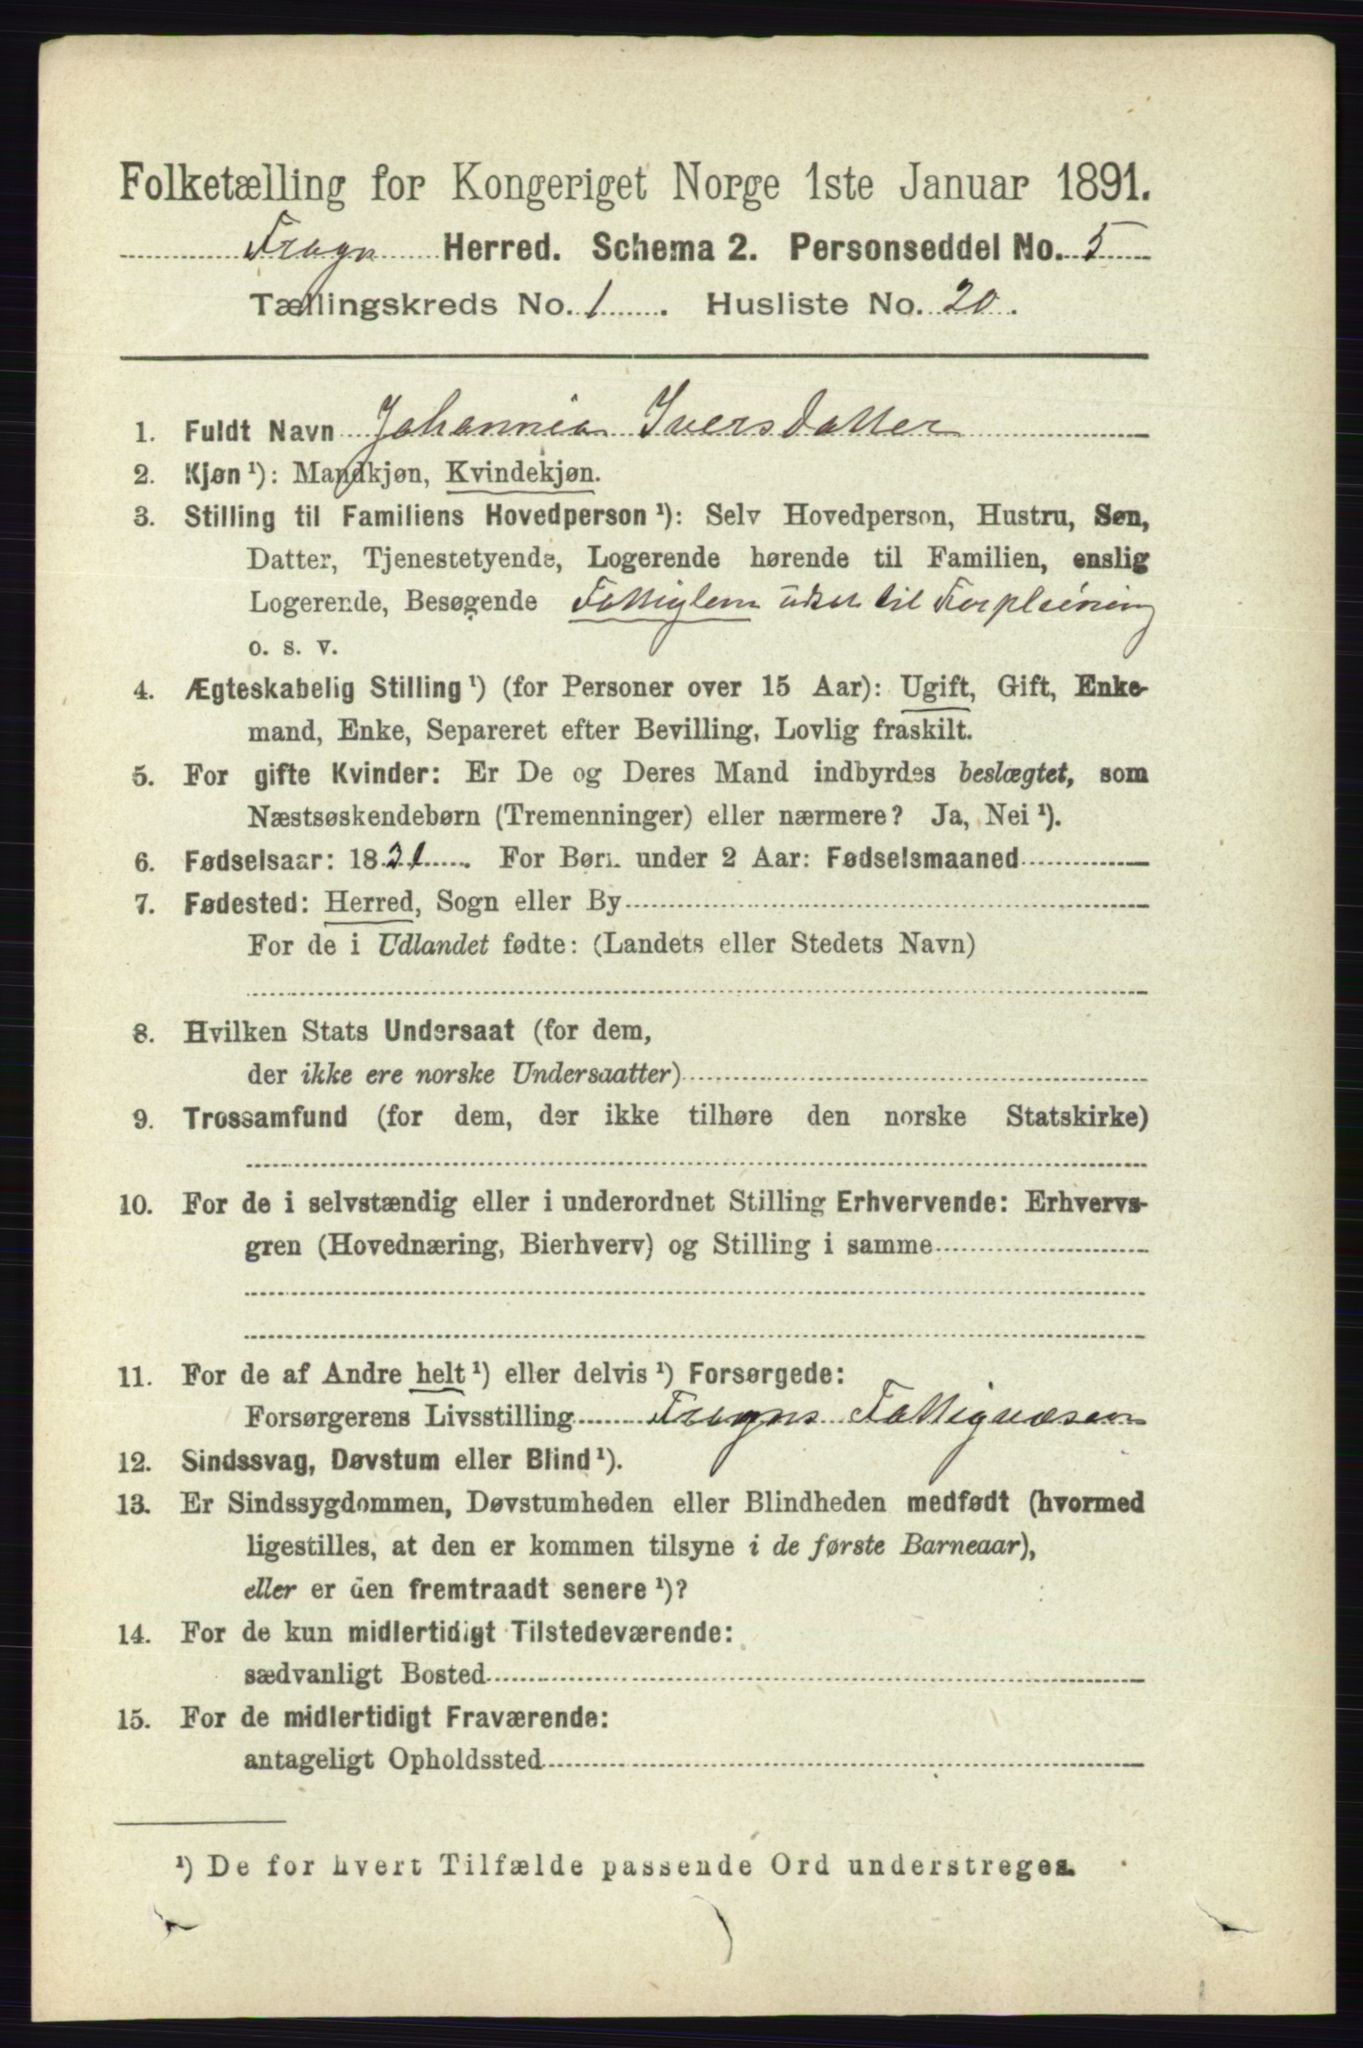 Folketælling for Kongeriget Norge 1ste Januar 1891.
Frogn Herred. Schema 2. Personseddel No. 5
Tællingskreds No. 1. Husliste No. 20.
1. Fuldt Navn Johannea Iversdatter
2. Kjøn ¹): Mandkjøn, Kvindekjøn.
3. Stilling til Familiens Hovedperson ¹): Selv Hovedperson, Hustru, Søn,
Datter, Tjenestetyende, Logerende hørende til Familien, enslig
Logerende, Besøgende Fattiglem udsat til Forpleining
o. s. v.
4. Ægteskabelig Stilling ¹) (for Personer over 15 Aar): Ugift, Gift, Enke-
mand, Enke, Separeret efter Bevilling, Lovlig fraskilt.
5. For gifte Kvinder: Er De og Deres Mand indbyrdes beslægtet, som
Næstsøskendebørn (Tremenninger) eller nærmere? Ja, Nei ¹).
6. Fødselsaar: 1821. For Børn under 2 Aar: Fødselsmaaned
7. Fødested: Herred, Sogn eller By
For de i Udlandet fødte: (Landets eller Stedets Navn)
8. Hvilken Stats Undersaat (for dem,
der ikke ere norske Undersaatter)
9. Trossamfund (for dem, der ikke tilhøre den norske Statskirke)
10. For de i selvstændig eller i underordnet Stilling Erhvervende: Erhvervs-
gren (Hovednæring, Bierhverv) og Stilling i samme
11. For de af Andre helt ¹) eller delvis ¹) Forsørgede:
Forsørgerens Livsstilling Frogns Fattigvæsen
12. Sindssvag, Døvstum eller Blind ¹).
13. Er Sindssygdommen, Døvstumheden eller Blindheden medfødt (hvormed
ligestilles, at den er kommen tilsyne i de første Barneaar),
eller er den fremtraadt senere ¹)?
14. For de kun midlertidigt Tilstedeværende:
sædvanligt Bosted
15. For de midlertidigt Fraværende:
antageligt Opholdssted
¹) De for hvert Tilfælde passende Ord understreges.